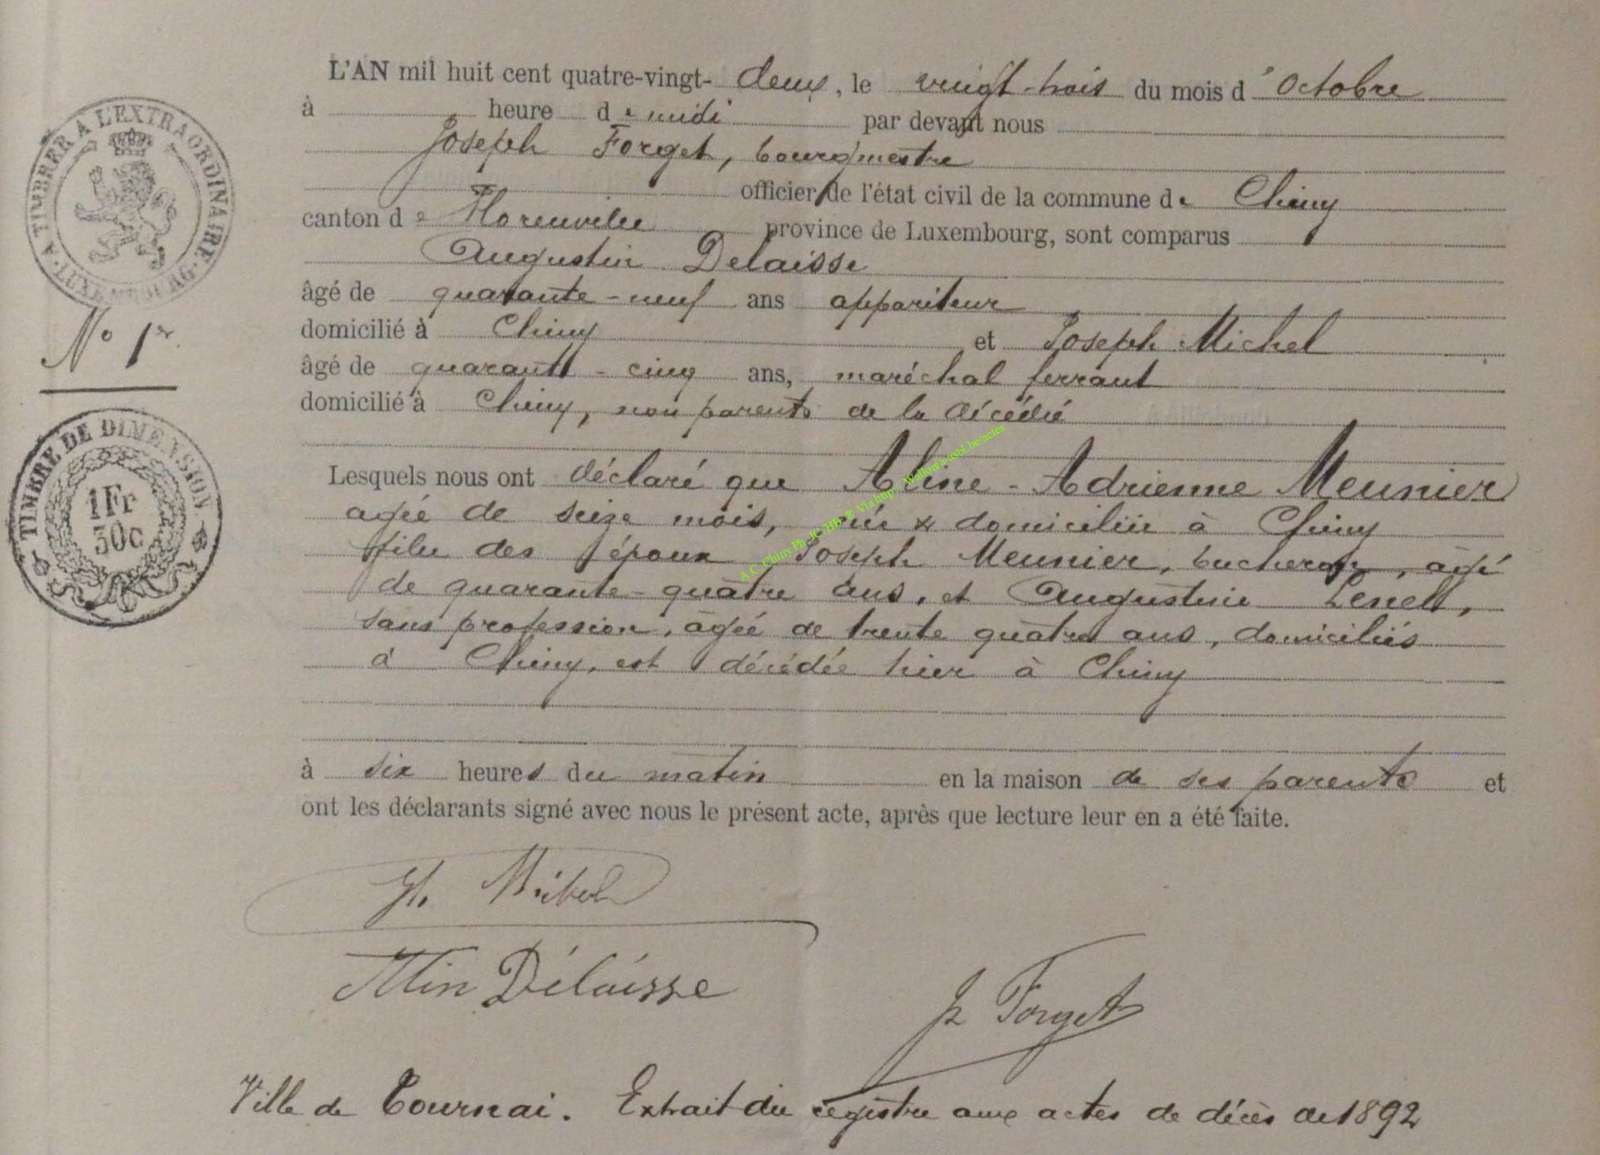 L'AN mil huit cent quatre-vingt-deux, le vingt-trois du mois d'Octobre
à heure de midi par devant nous
Joseph Forget, bourgmestre
officier de l'état civil de la commune de Chiny
canton de Florenville province de Luxembourg, sont comparus
Augustin Delaisse
âgé de quarante-neuf ans appariteur
domicilié à Chiny et Joseph Michel
âgé de quarante-cinq ans, maréchal ferrant
domicilié à Chiny, non parents de la décédée
Lesquels nous ont déclaré que Aline-Adrienne Meunier
agée de seize mois, née & domiciliée à Chiny
fille des époux Joseph Meunier, bucheron, agé
de quarante-quatre ans, et Augustine
sans profession, agée de trente quatre ans, domiciliés
à Chiny, est décédée hier à Chiny
à six heures du matin en la maison de ses parents et
ont les déclarants signé avec nous le présent acte, après que lecture leur en a été faite.
Michel
Délaisse
Forget
Ville de Tournai. Extrait du registre aux actes de décès de 1892
A TIMBRER A L'EXTRAORDINAIRE
LUXEMBOURG
N° 1er
TIMBRE DE DIMENSION
1Fr
30c